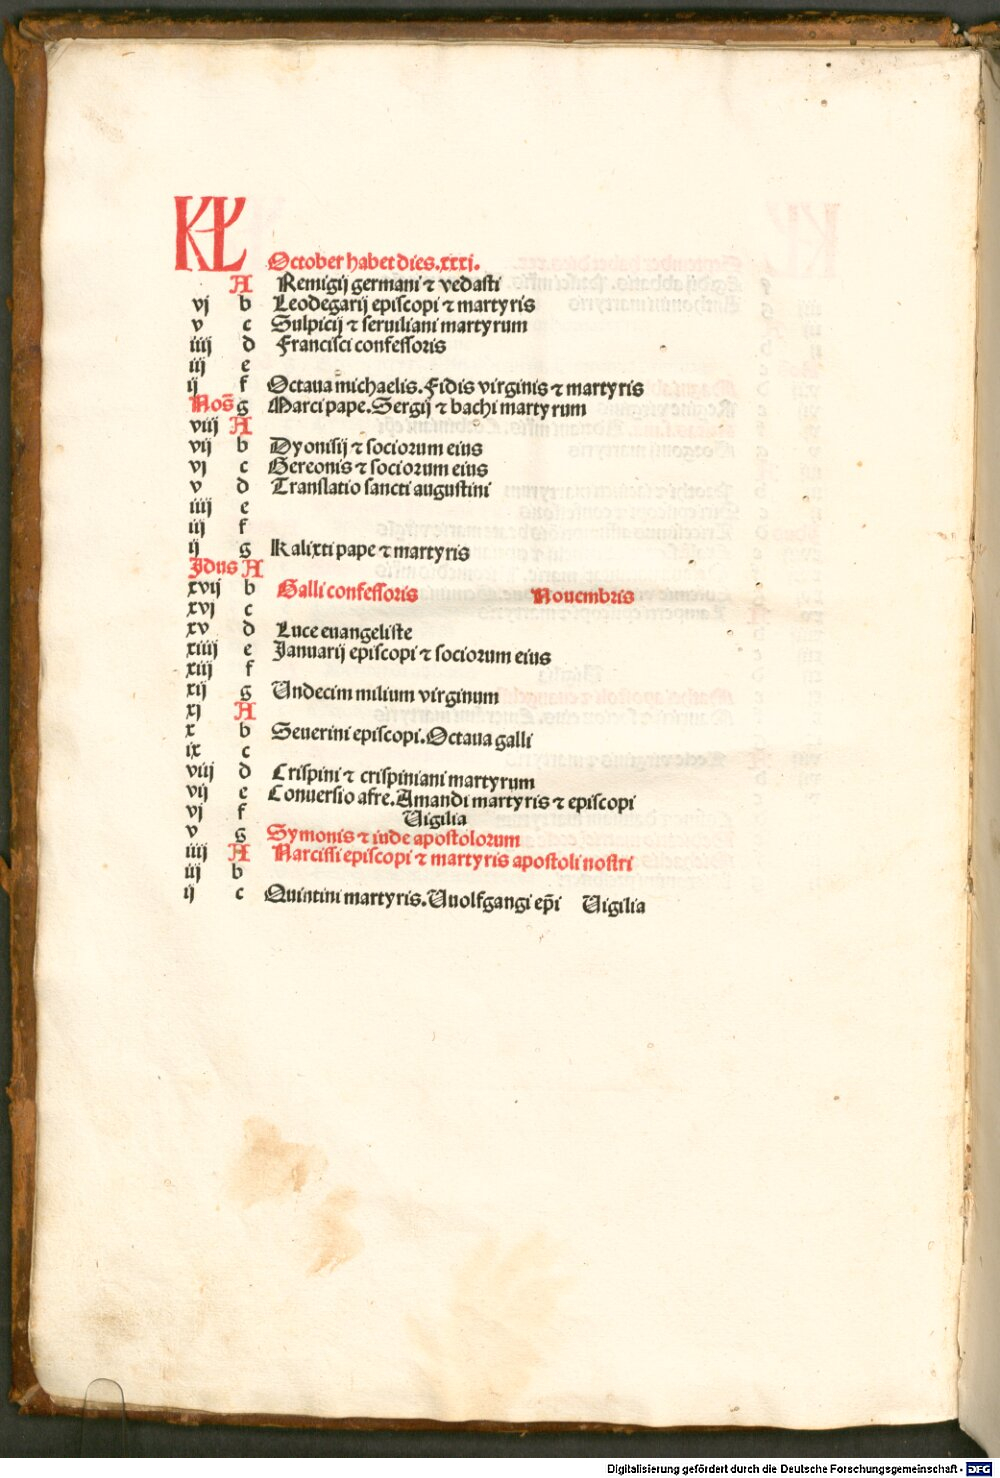 KL
October habet dies.xxxj.
A Remigij germani ⁊ vedasti
vj b Leodegarij episcopi ⁊ martyris
v c Sulpicij ⁊ seruiliani martyrum
iiij d Francisci confessoris
iij e
ij f Octaua michaelis.Fidis virginis ⁊ martyris
Noñ g Marci pape.Sergij ⁊ bachi martyrum
viij A
vij b Dyonisij ⁊ sociorum eius
vj c Gereonis ⁊ sociorum eius
v d Translatio sancti augustini
iiij e
iij f
ij g Kalixti pape ⁊ martyris
Jdus A
xvij b Galli confessoris Nouembris
xvj c
xv d Luce euangeliste
xiiij e Januarij episcopi ⁊ sociorum eius
xiij f
xij g Undecim milium virginum
xj A
x b Seuerini episcopi.Octaua galli
ix c
viij d Crispini ⁊ crispiniani martyrum
vij e Conuersio afre.Amandi martyris ⁊ episcopi
vj f Uigilia
v g Symonis ⁊ iude apostolorum
iiij A Narcissi episcopi ⁊ martyris apostoli nostri
iij b
ij c Quintini martyris.Uuolfgangi ep̄i Uigilia
Digitalisierung gefördert durch die Deutsche Forschungsgemeinschaft - DFG